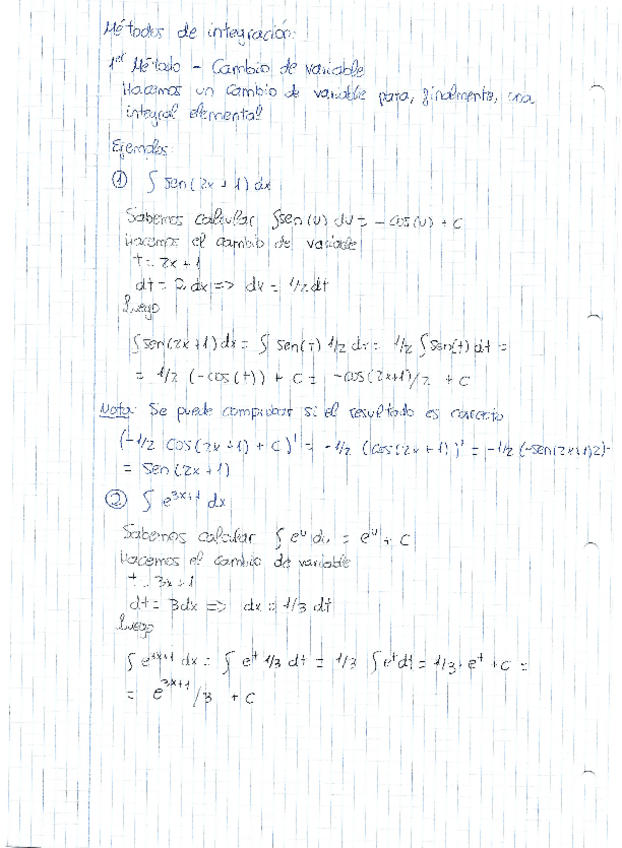 Métodos de integración:
1er Método - Cambio de variable
Hacemos un cambio de variable para, finalmente, una
integral elemental
Ejemplos:
① ∫ sen(2x+1) dx
Sabemos calcular ∫sen(u) du = -cos(u) + C
Hacemos el cambio de variable
t = 2x+1
dt = 2dx => dx = 1/2 dt
Luego
∫sen(2x+1)dx = ∫ sen(t) 1/2 dt = 1/2 ∫sen(t) dt =
= 1/2 (-cos(t)) + C = -cos(2x+1)/2 + C
Nota: Se puede comprobar si el resultado es correcto
(-1/2 cos(2x+1) + C)' = -1/2 (cos(2x+1))' = -1/2 (-sen(2x+1)2) =
= sen(2x+1)
② ∫ e^3x+1 dx
Sabemos calcular ∫ e^u du = e^u + C
Hacemos el cambio de variable
t = 3x+1
dt = 3dx => dx = 1/3 dt
Luego
∫ e^3x+1 dx = ∫ e^t 1/3 dt = 1/3 ∫ e^t dt = 1/3 · e^t + C =
= e^3x+1/3 + C